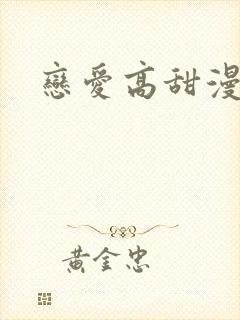 戀愛高甜漫
黃金忠